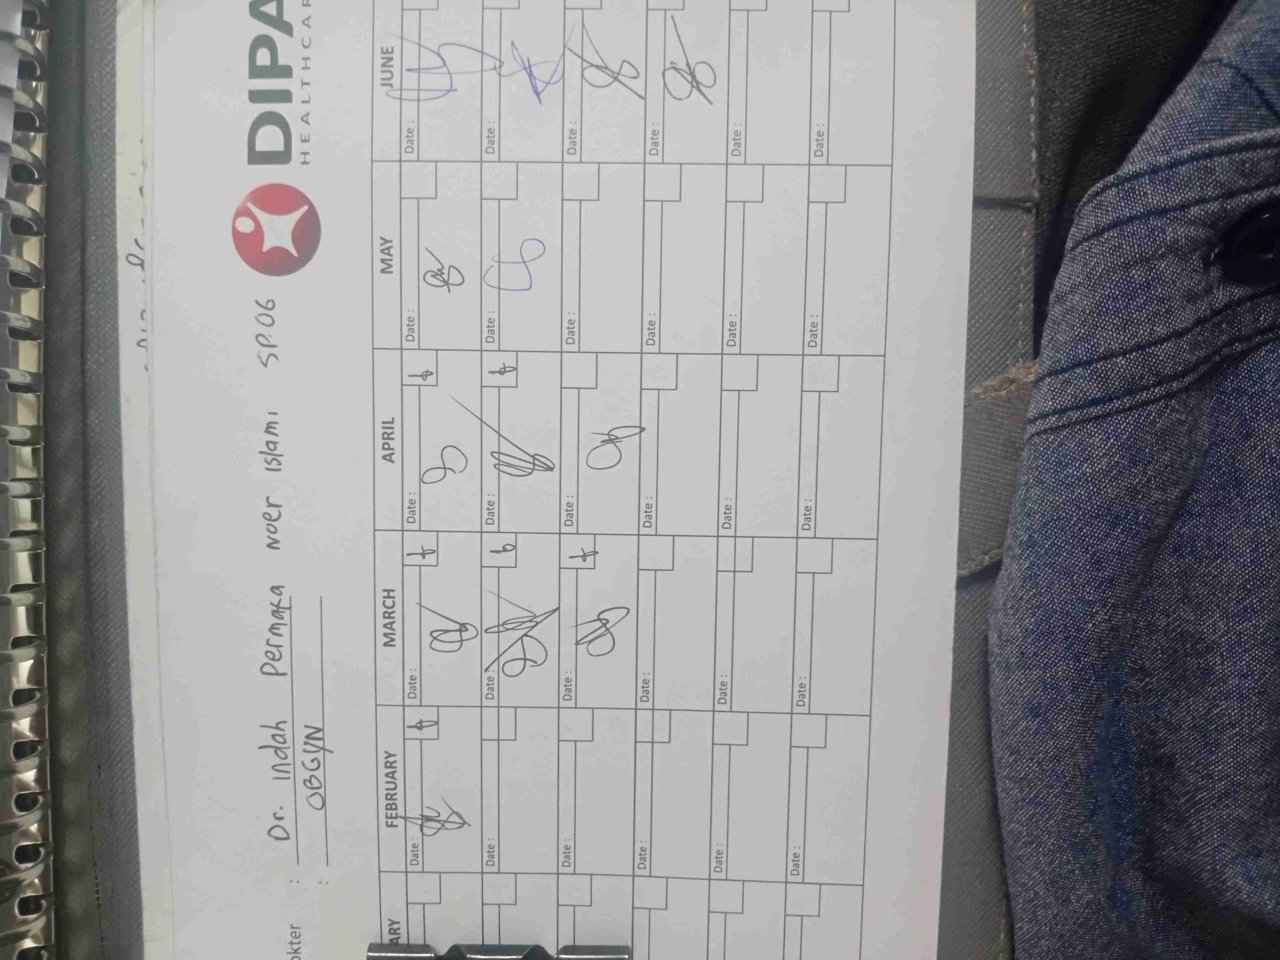 DIPA
HEALTHCAR
okter : Dr. Indah Permata Noer Islami SP.OG
: OBGYN
ARY FEBRUARY MARCH APRIL MAY JUNE
Date : Date : Date : Date : Date :
Date : Date : Date : Date : Date :
Date : Date : Date : Date : Date :
Date : Date : Date : Date : Date :
Date : Date : Date : Date : Date :
Date : Date : Date : Date : Date :